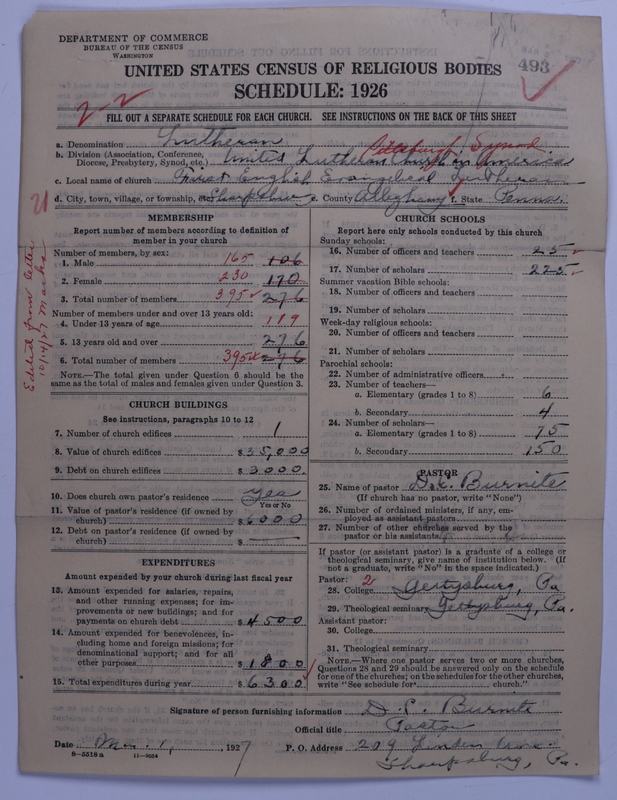 DEPARTMENT OF COMMERCE
BUREAU OF THE CENSUS
WASHINGTON
UNITED STATES CENSUS OF RELIGIOUS BODIES
493
SCHEDULE: 1926
2-2
FILL OUT A SEPARATE SCHEDULE FOR EACH CHURCH. SEE INSTRUCTIONS ON THE BACK OF THIS SHEET
a. Denomination Lutheran
b. Division (Association, Conference, Pittsburgh Synod
Diocese, Presbytery, Synod, etc.) United Lutheran Church in America
c. Local name of church First English Evangelical Lutheran
d. City, town, village, or township, etc. Sharpsburg e. County Allegheny f. State Penna.
Edited from letter
10/14/27 Marks
MEMBERSHIP
Report number of members according to definition of
member in your church
Number of members, by sex:
1. Male 165 106
2. Female 230 170
3. Total number of members 395 276
Number of members under and over 13 years old:
4. Under 13 years of age 119
5. 13 years old and over 276
6. Total number of members 395 276
NOTE.—The total given under Question 6 should be the
same as the total of males and females given under Question 3.
CHURCH BUILDINGS
See instructions, paragraphs 10 to 12
7. Number of church edifices 1
8. Value of church edifices $35,000
9. Debt on church edifices $3000.
10. Does church own pastor's residence Yes
Yes or No
11. Value of pastor's residence (if owned by
church) $6000
12. Debt on pastor's residence (if owned by
church) $
EXPENDITURES
Amount expended by your church during last fiscal year
13. Amount expended for salaries, repairs,
and other running expenses; for im-
provements or new buildings; and for
payments on church debt $4500
14. Amount expended for benevolences, in-
cluding home and foreign missions; for
denominational support; and for all
other purposes $1800
15. Total expenditures during year $6300
CHURCH SCHOOLS
Report here only schools conducted by this church
Sunday schools:
16. Number of officers and teachers 25
17. Number of scholars 225
Summer vacation Bible schools:
18. Number of officers and teachers
19. Number of scholars
Week-day religious schools:
20. Number of officers and teachers
21. Number of scholars
Parochial schools:
22. Number of administrative officers
23. Number of teachers—
a. Elementary (grades 1 to 8) 6
b. Secondary 4
24. Number of scholars—
a. Elementary (grades 1 to 8) 75
b. Secondary 150
PASTOR
25. Name of pastor D. C. Burnite
(If church has no pastor, write "None")
26. Number of ordained ministers, if any, em-
ployed as assistant pastors
27. Number of other churches served by the
pastor or his assistants
If pastor (or assistant pastor) is a graduate of a college or
theological seminary, give name of institution below. (If
not a graduate, write "No" in the space indicated.)
Pastor: 2
28. College Gettysburg, Pa
29. Theological seminary Gettysburg, Pa.
Assistant pastor:
30. College
31. Theological seminary
NOTE.—Where one pastor serves two or more churches,
Questions 28 and 29 should be answered only on the schedule
for one of the churches; on the schedules for the other churches,
write "See schedule for church."
Signature of person furnishing information D. C. Burnite
Official title Pastor
Date Mar. 1, 1927 P. O. Address 209 Linden Ave.
8-5518a 11-9054 Sharpsburg, Pa.